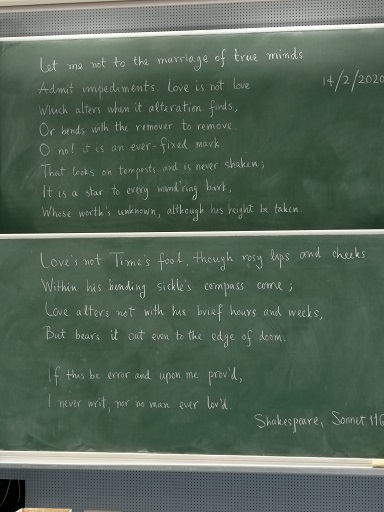 Let me not to the marriage of true minds
14/2/2020
Admit impediments. Love is not love
Which alters when it alteration finds,
Or bends with the remover to remove.
O no! it is an ever-fixed mark
That looks on tempests and is never shaken;
It is a star to every wand'ring bark,
Whose worth's unknown, although his height be taken.
Love's not Time's fool, though rosy lips and cheeks
Within his bending sickle's compass come;
Love alters not with his brief hours and weeks,
But bears it out even to the edge of doom.
If this be error and upon me prov'd,
I never writ, nor no man ever lov'd.
Shakespeare, Sonnet 116